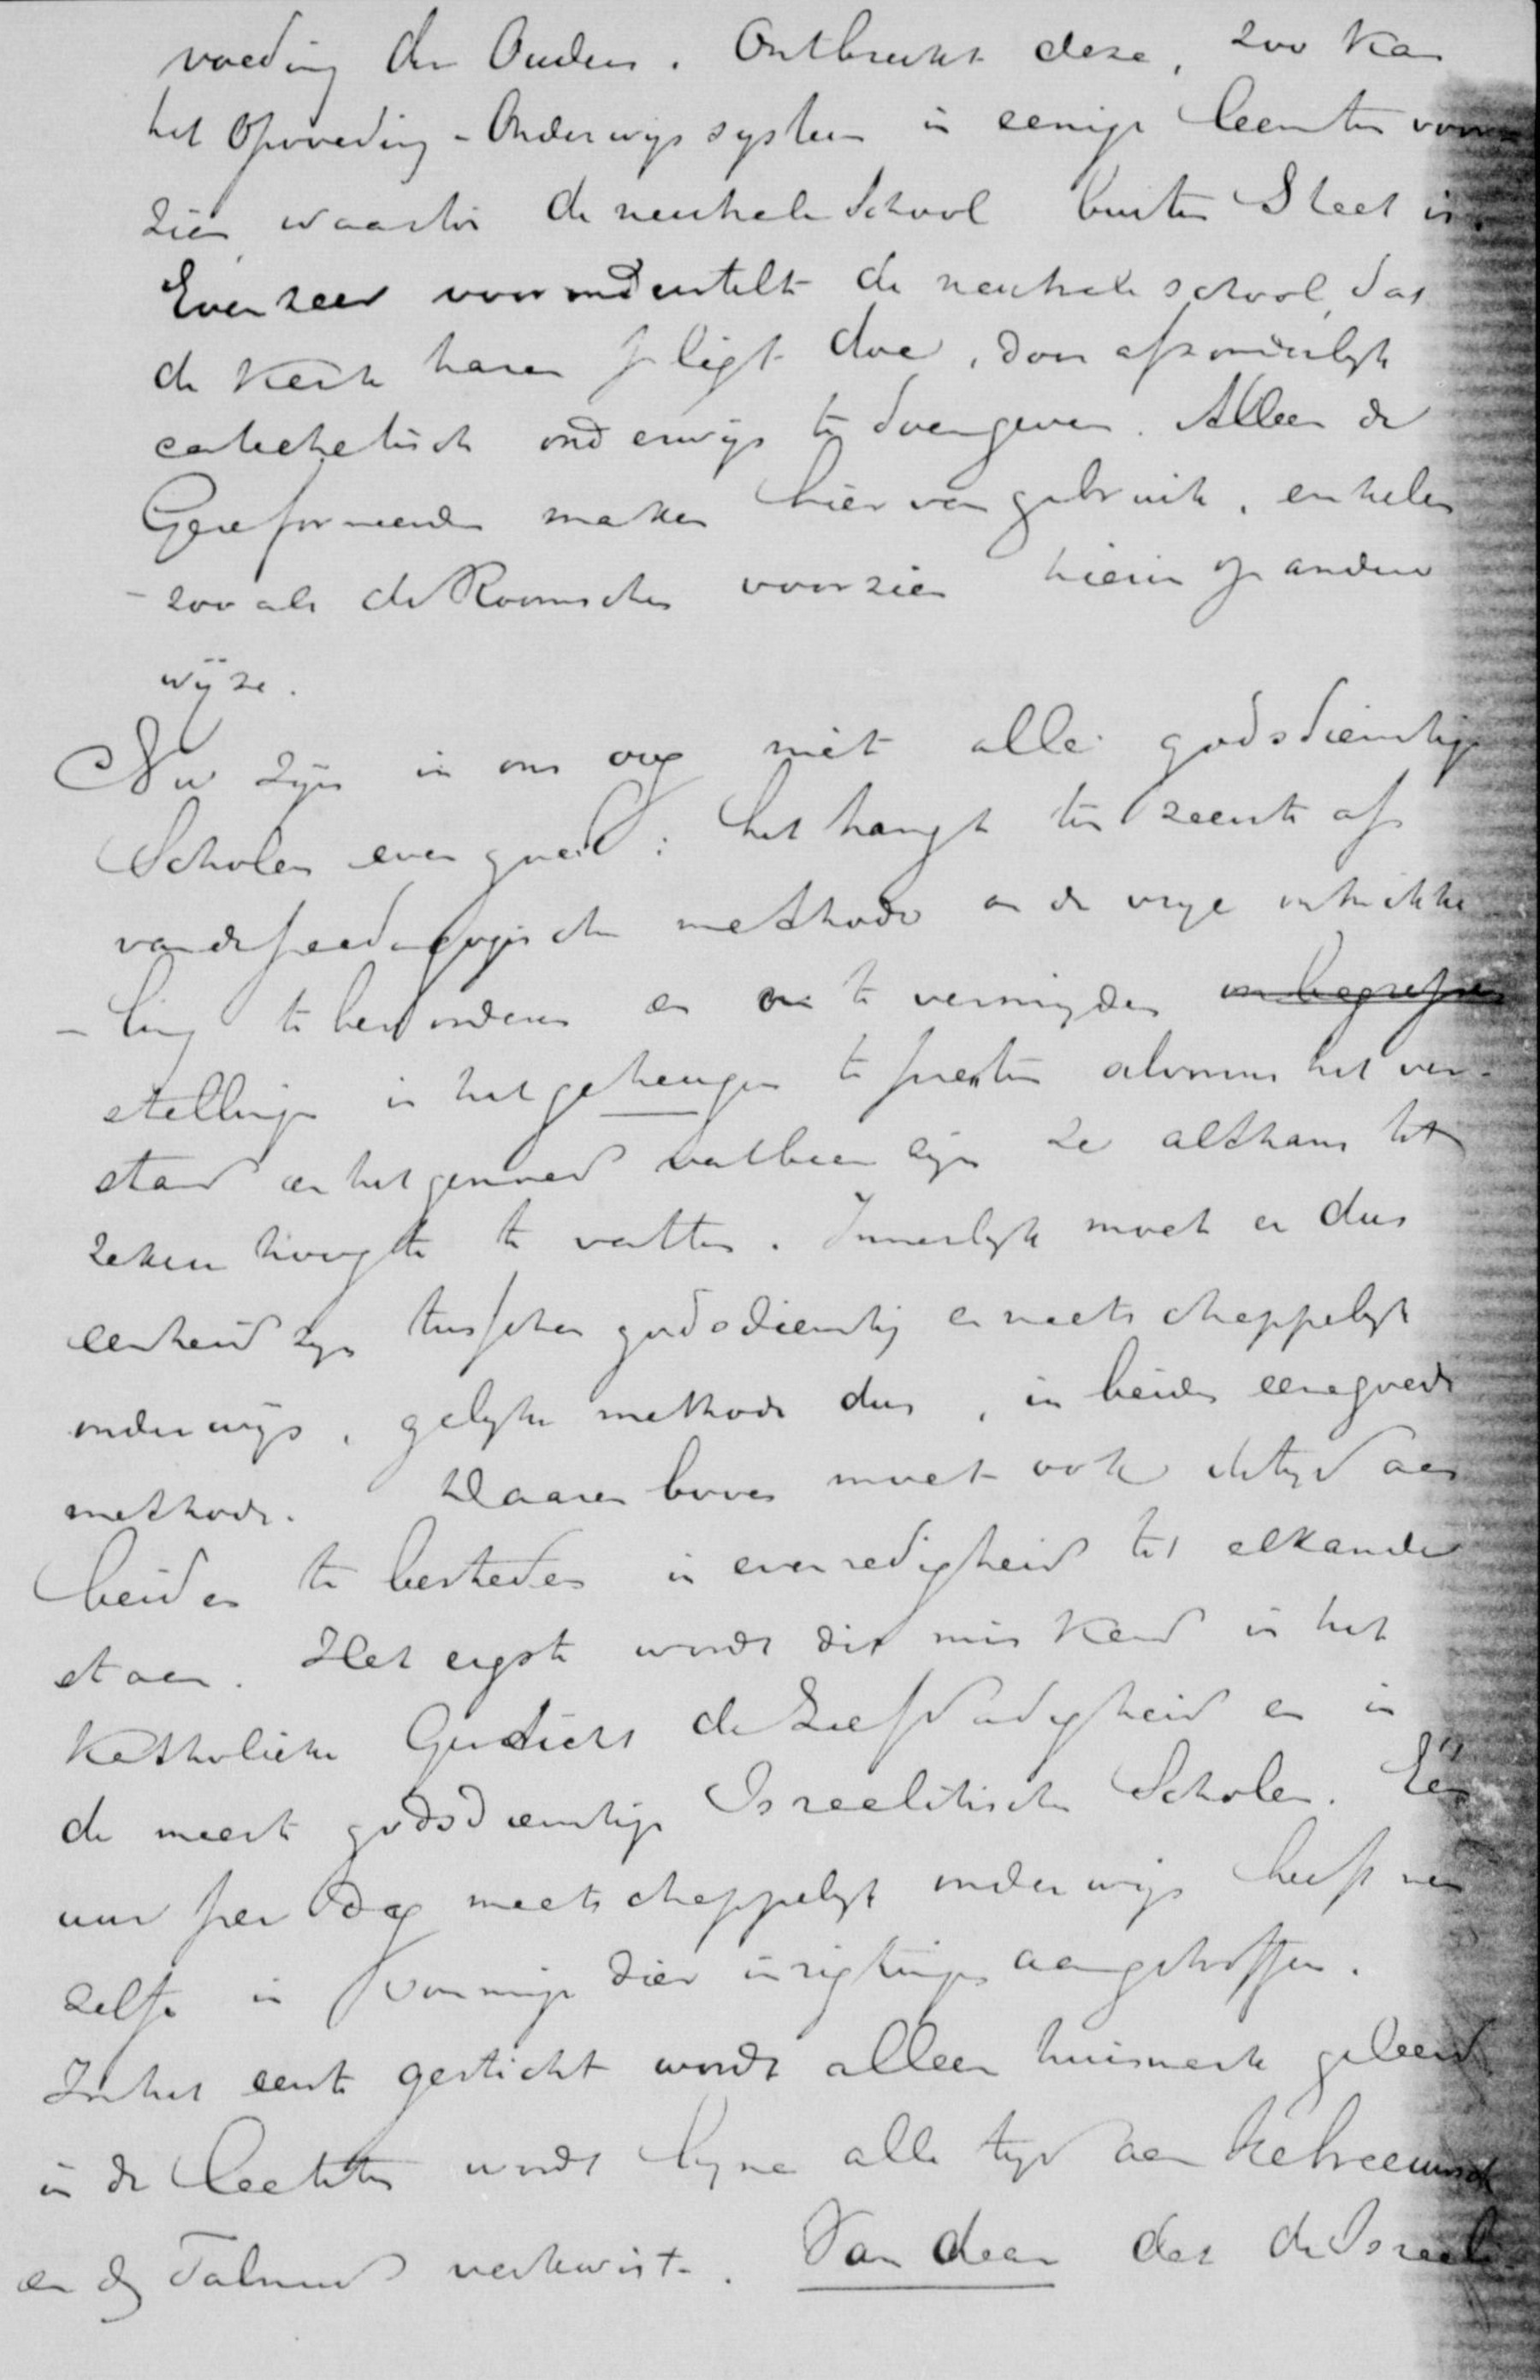 voeding der Ouders. Ontbreekt deze, zoo kan
het Opvoeding-Onderwijs systeem in eenige leemten voor
zien waartoe de neutrale School buiten Staat is.
Evenzeer vooronderstelt de neutrale school, dat
de Kerk haren pligt doe, door afzonderlijk
catechetisch onderwijs te doen geven. Alleen de
Gereformeerden maken hiervan gebruik, enkelen
- zoo als de Roomschen voorzien hierin op andere
wijze.
Nu zijn in ons oog niet alle godsdienstige
Scholen even goed: het hangt ten zeerste af
van de paedagogische methode om de vrije ontwikke
- ling te bevorderen en om te vermijden
stellingen in het geheugen te prenten alvorens het ver-
stand en het gemoed vatbaar zijn ze althans tot
zekere hoogte te vatten. Innerlijk moet er dus
eenheid zijn tusschen godsdienstig en maatschappelijk
onderwijs, gelijke methode dus, in beiden eene goede
methode. Daarenboven moet ook de tijd aan
beiden te besteden in evenredigheid tot elkander
staan. Het ergste wordt dit miskend in het
Katholieke Gesticht de Liefdadigheid en in
de meest godsdienstige Israelitische Scholen. Één
uur per dag maatschappelijk onderwijs heeft men
zelfs in sommige dier inrigtingen aangetroffen.
In het eerste gesticht wordt alleen huiswerk geleerd
in de laatsten wordt bijna alle tijd aan hebreeuwsch
en de Talmud verkwist. Van daar dat de Israeli